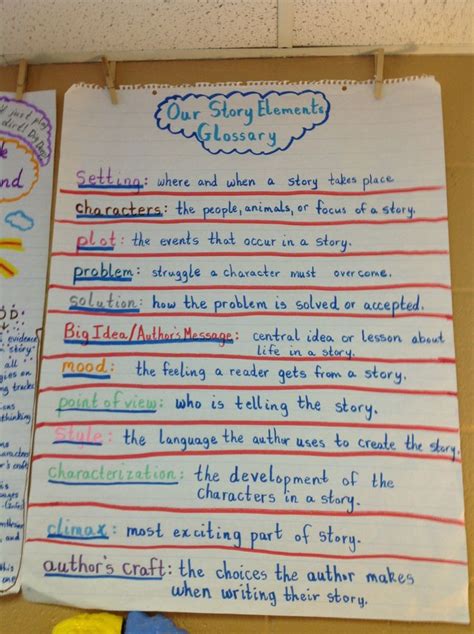 Our Story Elements
Glossary
Setting: where and when a story takes place
characters: the people, animals, or focus of a story.
plot: the events that occur in a story.
problem: struggle a character must overcome.
solution: how the problem is solved or accepted.
Big Idea/Author's Message: central idea or lesson about
life in a story.
mood: the feeling a reader gets from a story.
point of view: who is telling the story.
style: the language the author uses to create the story.
characterization: the development of the
characters in a story.
climax: most exciting part of story.
author's craft: the choices the author makes
when writing their story.
just play
evidence
"story"
all
tracks
thinking